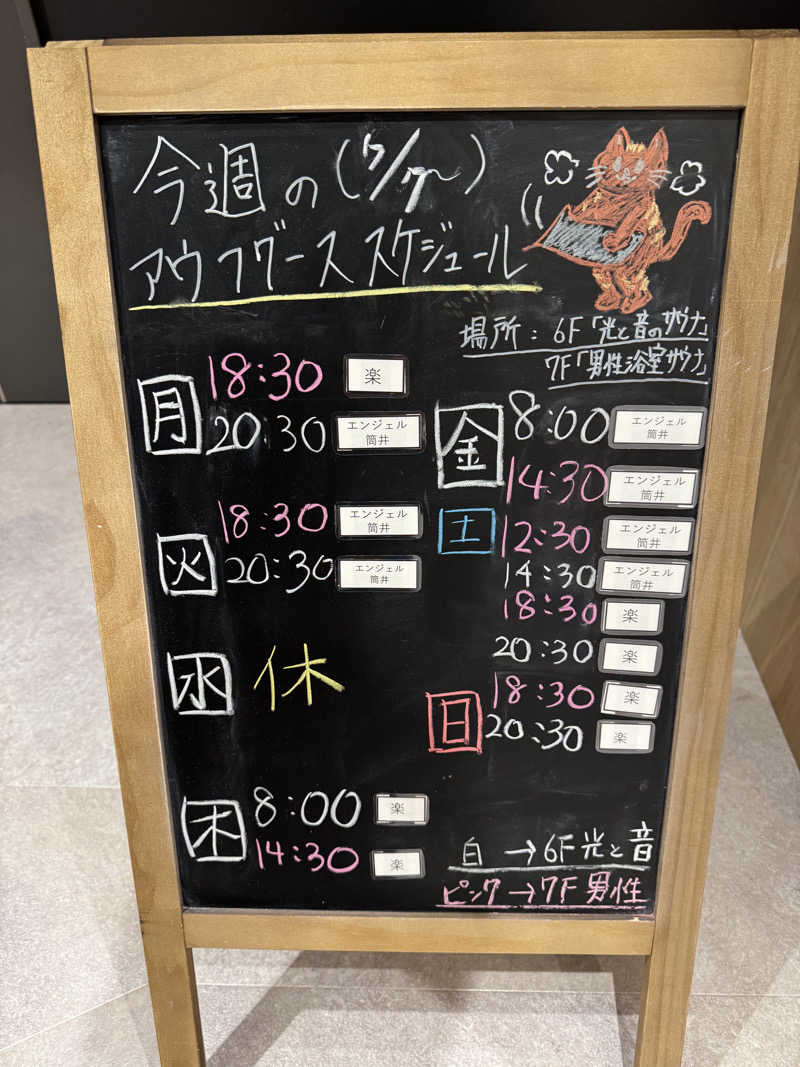 今週の(7/7〜)
アウフグーススケジュール
場所：6F「光と音のサウナ」
7F「男性浴室サウナ」
月
18:30 楽
20:30 エンジェル
筒井
火
18:30 エンジェル
筒井
20:30 エンジェル
筒井
水 休
木
8:00 楽
14:30 楽
金
8:00 エンジェル
筒井
14:30 エンジェル
筒井
土
12:30 エンジェル
筒井
14:30 エンジェル
筒井
18:30 楽
20:30 楽
日
18:30 楽
20:30 楽
白→6F光と音
ピンク→7F男性